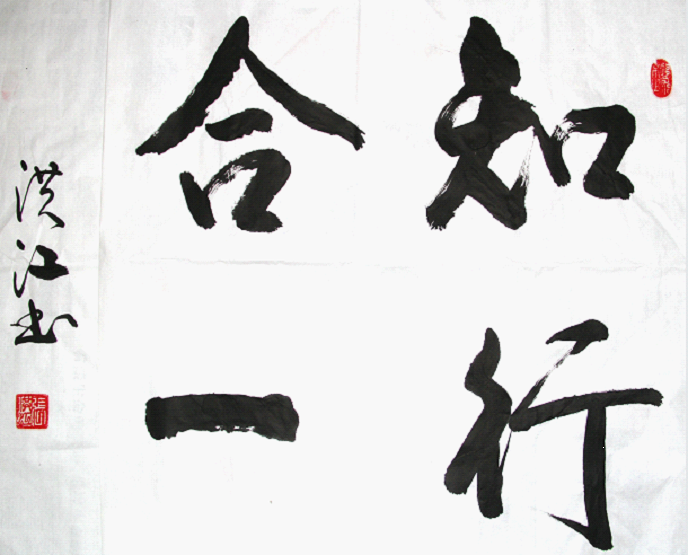 知行
合一
洪江书